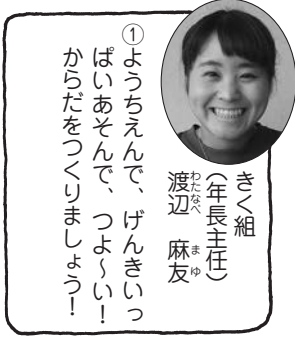 きく組
（年長主任）
渡辺　麻友
わたなべ　まゆ
①ようちえんで、げんきいっ
ぱいあそんで、つよ～い！
からだをつくりましょう！